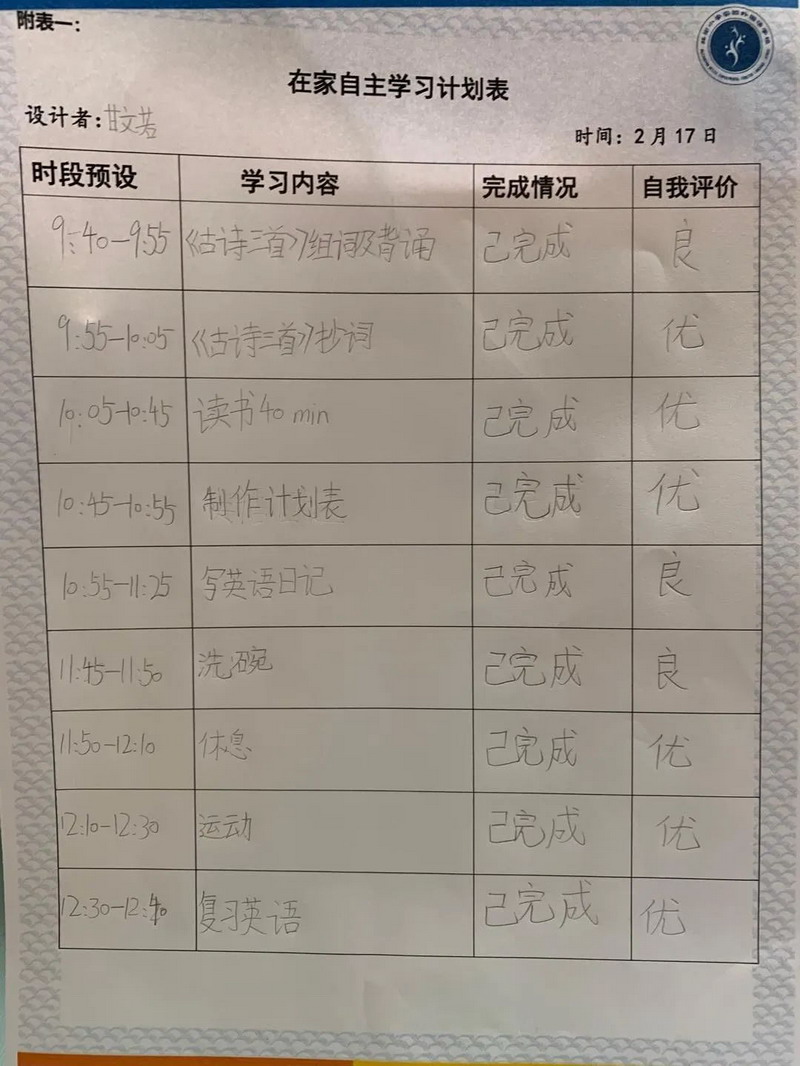 附表一：
在家自主学习计划表
设计者：甘文若
时间：2月17日
时段预设 学习内容 完成情况 自我评价
9:40-9:55 《古诗三首》组词及背诵 已完成 良
9:55-10:05 《古诗三首》抄词 已完成 优
10:05-10:45 读书40min 已完成 优
10:45-10:55 制作计划表 已完成 优
10:55-11:25 写英语日记 已完成 良
11:45-11:50 洗碗 已完成 良
11:50-12:10 休息 已完成 优
12:10-12:30 运动 已完成 优
12:30-12:40 复习英语 已完成 优